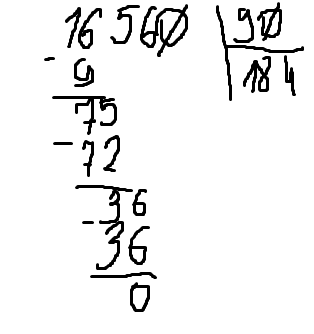 16 560 90
- 9 184
75
- 72
36
- 36
0